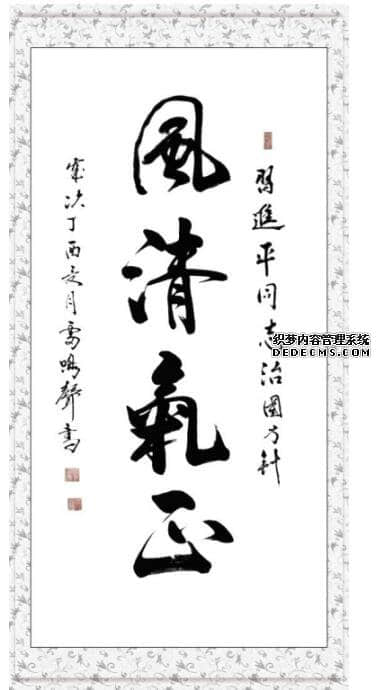 習進平同志治國方針
風清氣正
歲次丁酉月鳴聲書
织梦内容管理系统
DEDECMS.COM